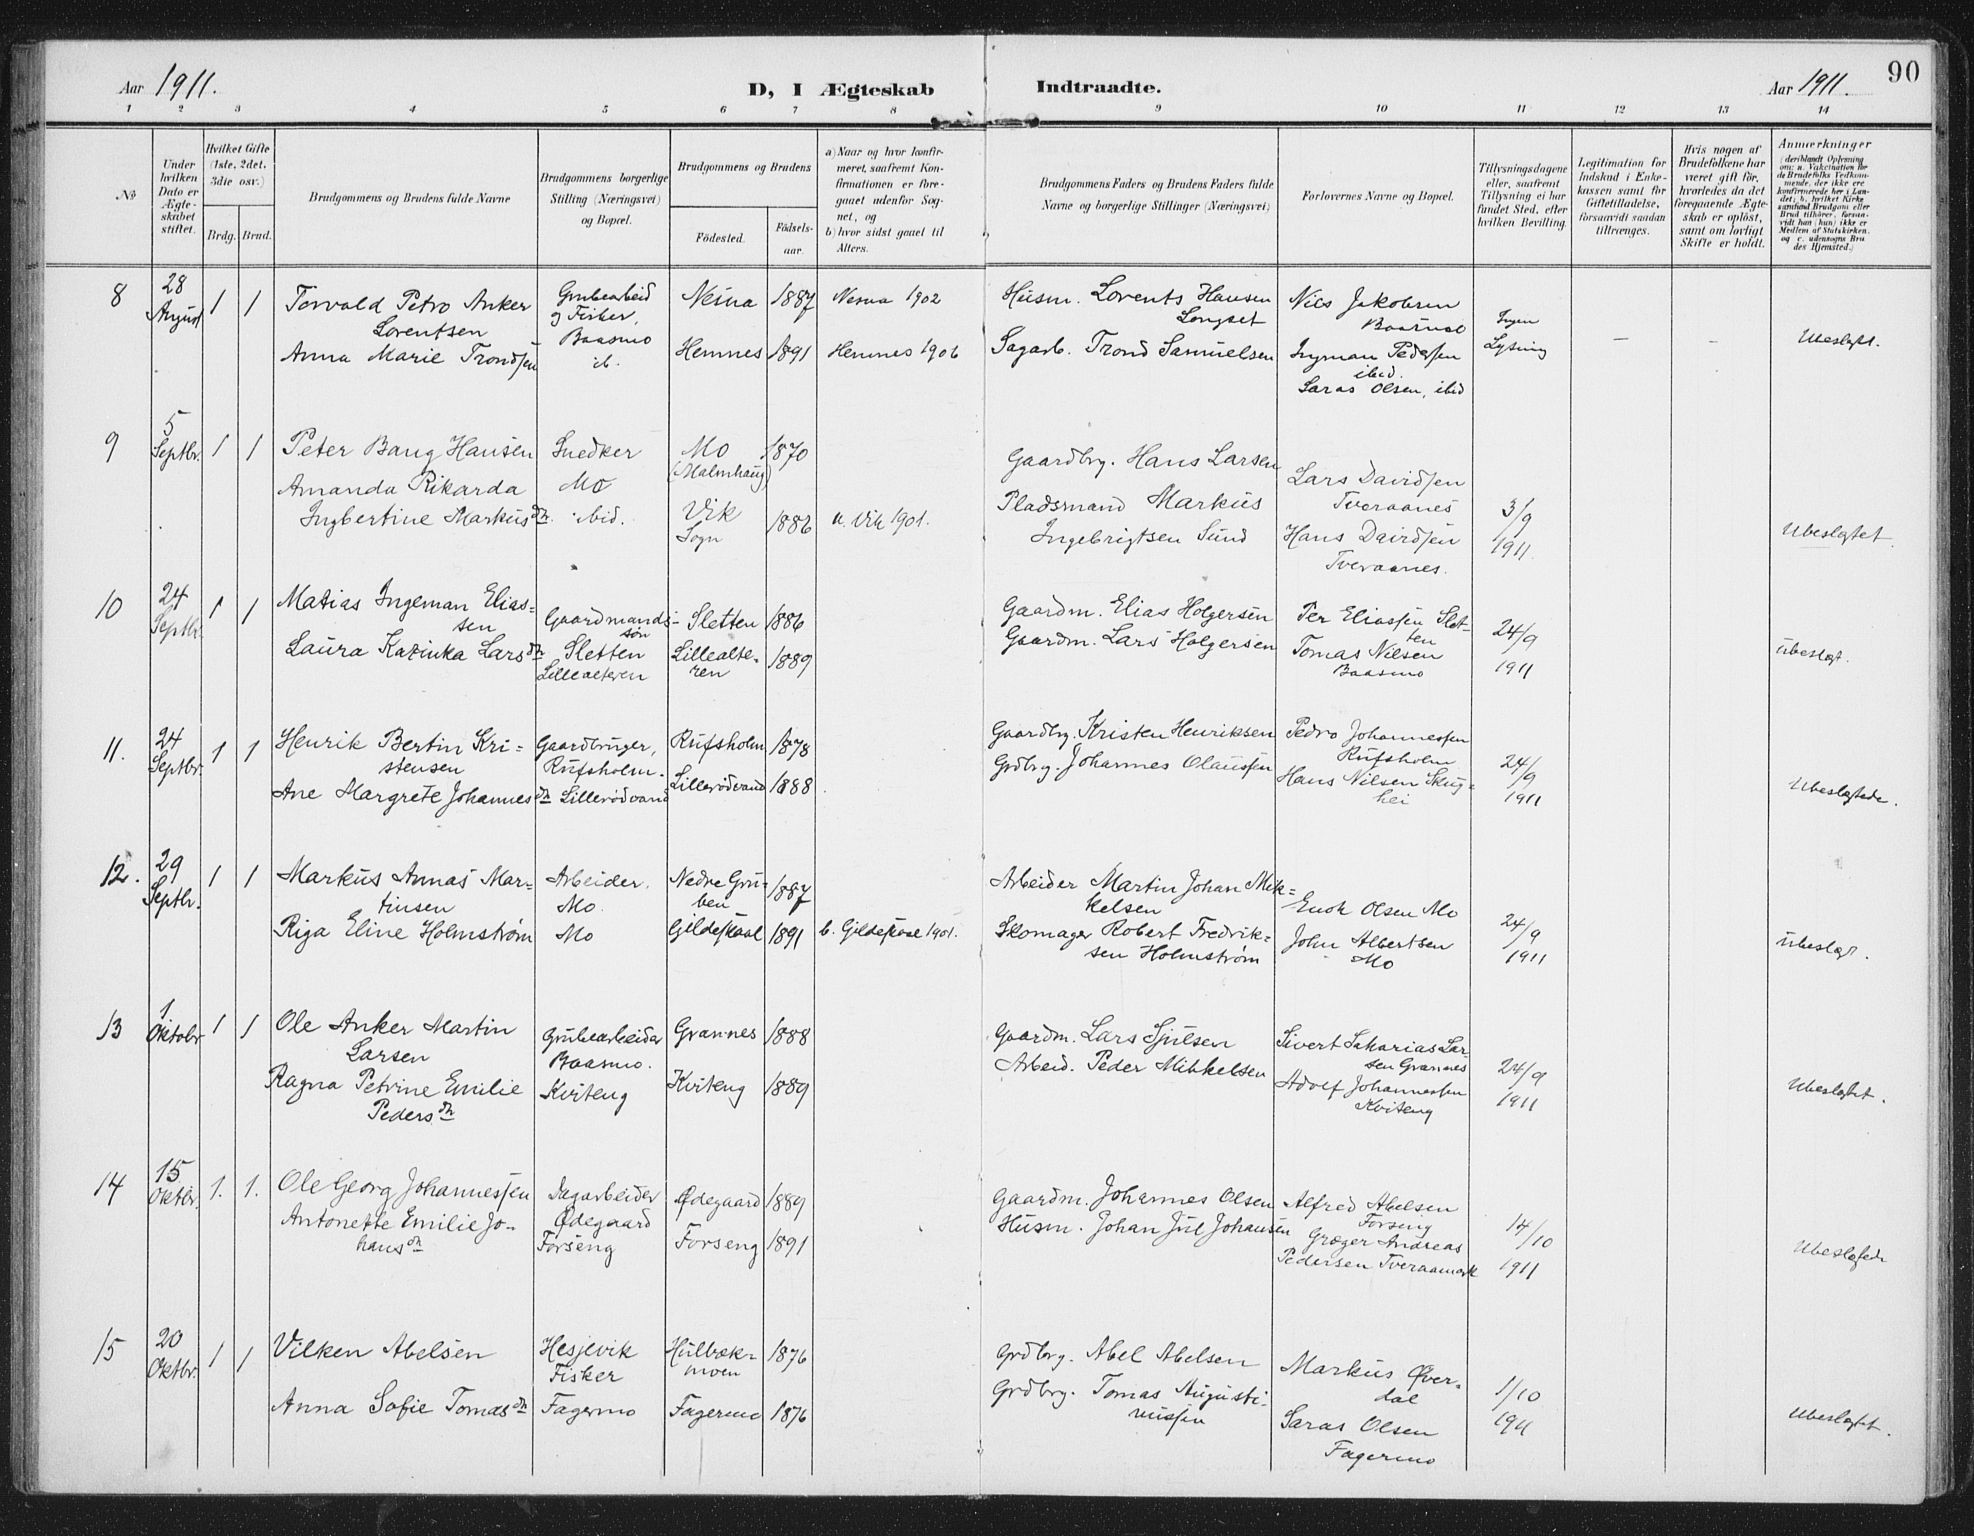 90
Aar 1911. D, I Ægteskab Indtraadte. Aar 1911.
1 2 3 4 5 6 7 8 9 10 11 12 13 14
No
Under hvilken Dato er Ægteskabet stiftet.
Hvilket Gifte (1ste, 2det, 3die osv.)
Brdg. Brud.
Brudgommens og Brudens fulde Navne
Brudgommens borgerlige Stilling (Næringsvei) og Bopæl.
Brudgommens og Brudens
Fødested. Fødselsaar.
a) Naar og hvor konfirmeret, saafremt Konfirmationen er foregaaet udenfor Sognet, og
b) hvor sidst gaaet til Alters.
Brudgommens Faders og Brudens Faders fulde Navne og borgerlige Stillinger (Næringsvei)
Forlovernes Navne og Bopæl.
Tillysningsdagene eller, saafremt Tillysning ei har fundet Sted, efter hvilken Bevilling.
Legitimation for Indskud i Enkekassen samt for Giftetilladelse, forsaavidt saadan tiltrænges.
Hvis nogen af Brudefolkene har været gift før, hvorledes da det foregaaende Ægteskab er opløst, samt om lovligt Skifte er holdt.
Anmerkninger
(deriblandt Oplysning om: a. Vakcination for de Brudefolks Vedkommende, der ikke ere konfirmerede her i Landet; b. hvilket Kirkesamfund Brudgom eller Brud tilhører, forsaavidt han (hun) ikke er Medlem af Statskirken, og c. udensogns Brudes Hjemsted.)
8 28 August 1 1
Torvald Petro Anker Lorentsen
Grubearbeid og Fisker, Baasmo
Nesna 1887 Nesna 1902
Husm. Lorents Hansen Longset
Nils Jakobsen Baasmo
Ingen Lysning
Anna Marie Trondsen
ib.
Hemnes 1891 Hemnes 1906
Sagarb. Trond Samuelsen
Ingman Pedersen ibid.
Saras Olsen, ibid
– –
Ubeslegt.
9 5 Septbr. 1 1
Peter Bang Hansen
Snedker Mo
Mo (Malmhaug) 1870
Gaardbrg. Hans Larsen
Lars Davidsen Tveraanes
Amanda Rikarda Ingbertine Markusdtr.
ibid.
Vik Sogn 1886 a. Vik 1901.
Pladsmand Markus Ingebrigtsen Sund
Hans Davidsen Tveraanes.
3/9 1911.
Ubeslegtet
10 24 Septbr. 1 1
Matias Ingeman Eliassen
Gaardmandssøn Sletten
Sletten 1886
Gaardm. Elias Holgersen
Per Eliassen Sletten
Laura Katinka Larsdtr
Lillealteren
Lillealteren 1889
Gaardm. Lars Holgersen
Tomas Nilsen Baasmo
24/9 1911
Ubeslegt.
11. 24 Septbr. 1 1
Henrik Bertin Kristensen
Gaardbruger, Rufsholm.
Rufsholm 1878
Gaardbrg. Kristen Henriksen
Pedro Johannessen Rufsholm
Ane Margrete Johannesdtr
Lillerødvand
Lillerødvand 1888
Grdbrg. Johannes Olaussen
Hans Nilsen Skughei
24/9 1911
Ubeslegtede.
12. 29 Septbr. 1 1
Markus Annas Martinsen
Arbeider. Mo
Nedre Gruben 1887
Arbeider Martin Johan Mikkelsen
Enok Olsen Mo
Riga Eline Holmstrøm
Mo
Gildeskaal 1891 b. Gildeskaal 1901.
Skomager Robert Fredriksen Holmstrøm
John Albertsen Mo
24/9 1911
Ubeslegt.
13 1 Oktobr 1 1
Ole Anker Martin Larsen
Grubearbeider Baasmo.
Grannes 1888
Gaardm. Lars Sjulsen
Sivert Sakarias Larsen Grannes
Ragna Petrine Emilie Pedersdtr
Kviteng
Kviteng 1889
Arbeid. Peder Mikkelsen
Adolf Johannessen Kviteng
24/9 1911
Ubeslegtet.
14 15 Oktbr. 1. 1.
Ole Georg Johannessen
Dagarbeider Ødegaard
Ødegaard 1889
Gaardm. Johannes Olsen
Alfred Abelsen Forseng
Antonette Emilie Johansdtr
Forseng
Forseng 1891
Husm. Johan Jul Johansen
Græger Andreas Pedersen Tveraamark
14/10 1911
Ubeslegtede
15 20 Oktbr. 1 1
Vilken Abelsen
Hesjevik Fisker
Hulbækmoen 1876
Grdbrg. Abel Abelsen
Markus Øverdal
Anna Sofie Tomasdtr
Fagermo
Fagermo 1876
Grdbrg. Tomas Augustinussen
Saras Olsen Fagermo
1/10 1911
Ubeslegtet.